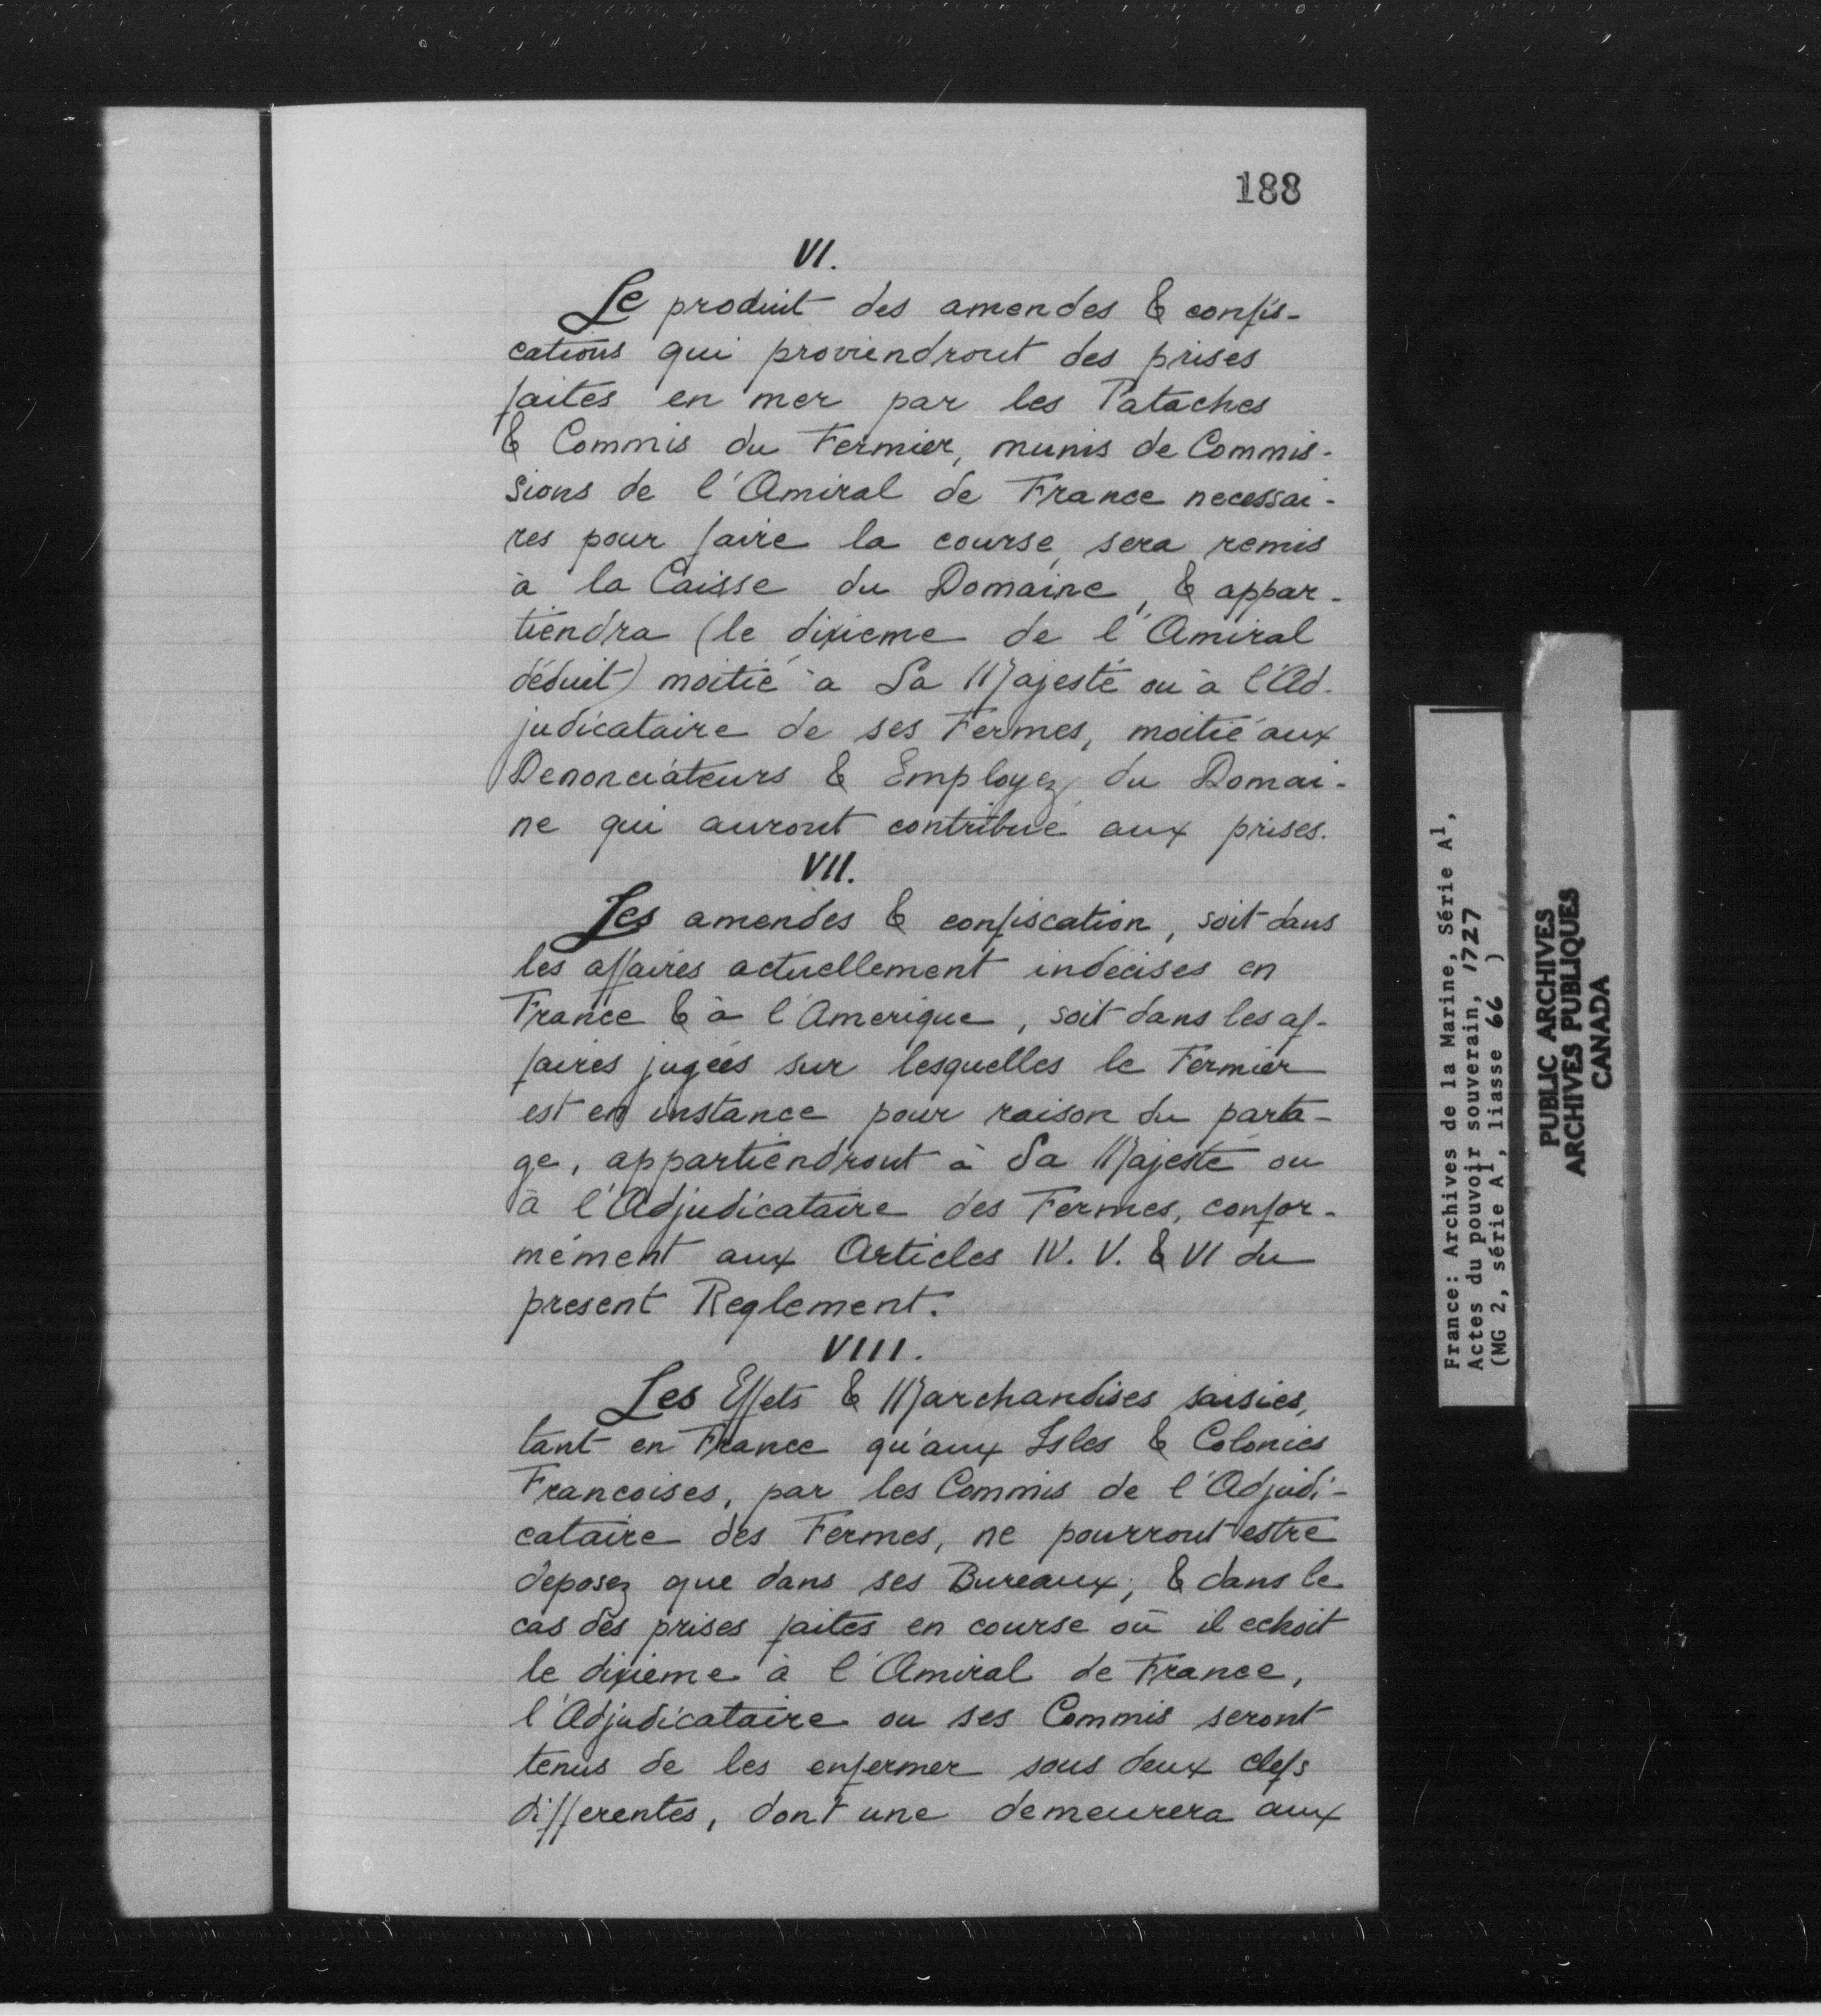 188
VI.
Le produit des amendes & confis-
cations qui proviendront des prises
faites en mer par les Pataches
& Commis du Fermier, munis de Commis-
sions de l'Amiral de France necessai-
res pour faire la course, sera remis
à la Caisse du Domaine, & appar-
tiendra (le dixieme de l'Amiral
déduit) moitié à Sa Majesté ou à l'Ad-
judicataire de ses Fermes, moitié aux
Denonciateurs & Employez du Domai-
ne qui auront contribué aux prises.
VII.
Les amendes & confiscation, soit dans
les affaires actuellement indécises en
France & à l'Amerique, soit dans les af-
faires jugées sur lesquelles le Fermier
est en instance pour raison du parta-
ge, appartiendront à Sa Majesté ou
à l'Adjudicataire des Fermes, confor-
mément aux Articles IV. V. & VI du
present Reglement.
VIII.
Les Effets & Marchandises saisies,
tant en France qu'aux Isles & Colonies
Francoises, par les Commis de l'Adjudi-
cataire des Fermes, ne pourront estre
deposez que dans ses Bureaux; & dans le
cas des prises faites en course où il echoit
le dixieme à l'Amiral de France,
l'Adjudicataire ou ses Commis seront
tenus de les enfermer sous deux clefs
differentes, dont une demeurera aux
France: Archives de la Marine, Série A1,
Actes du pouvoir souverain, 1727
(MG 2, série A1, liasse 66 )
PUBLIC ARCHIVES
ARCHIVES PUBLIQUES
CANADA